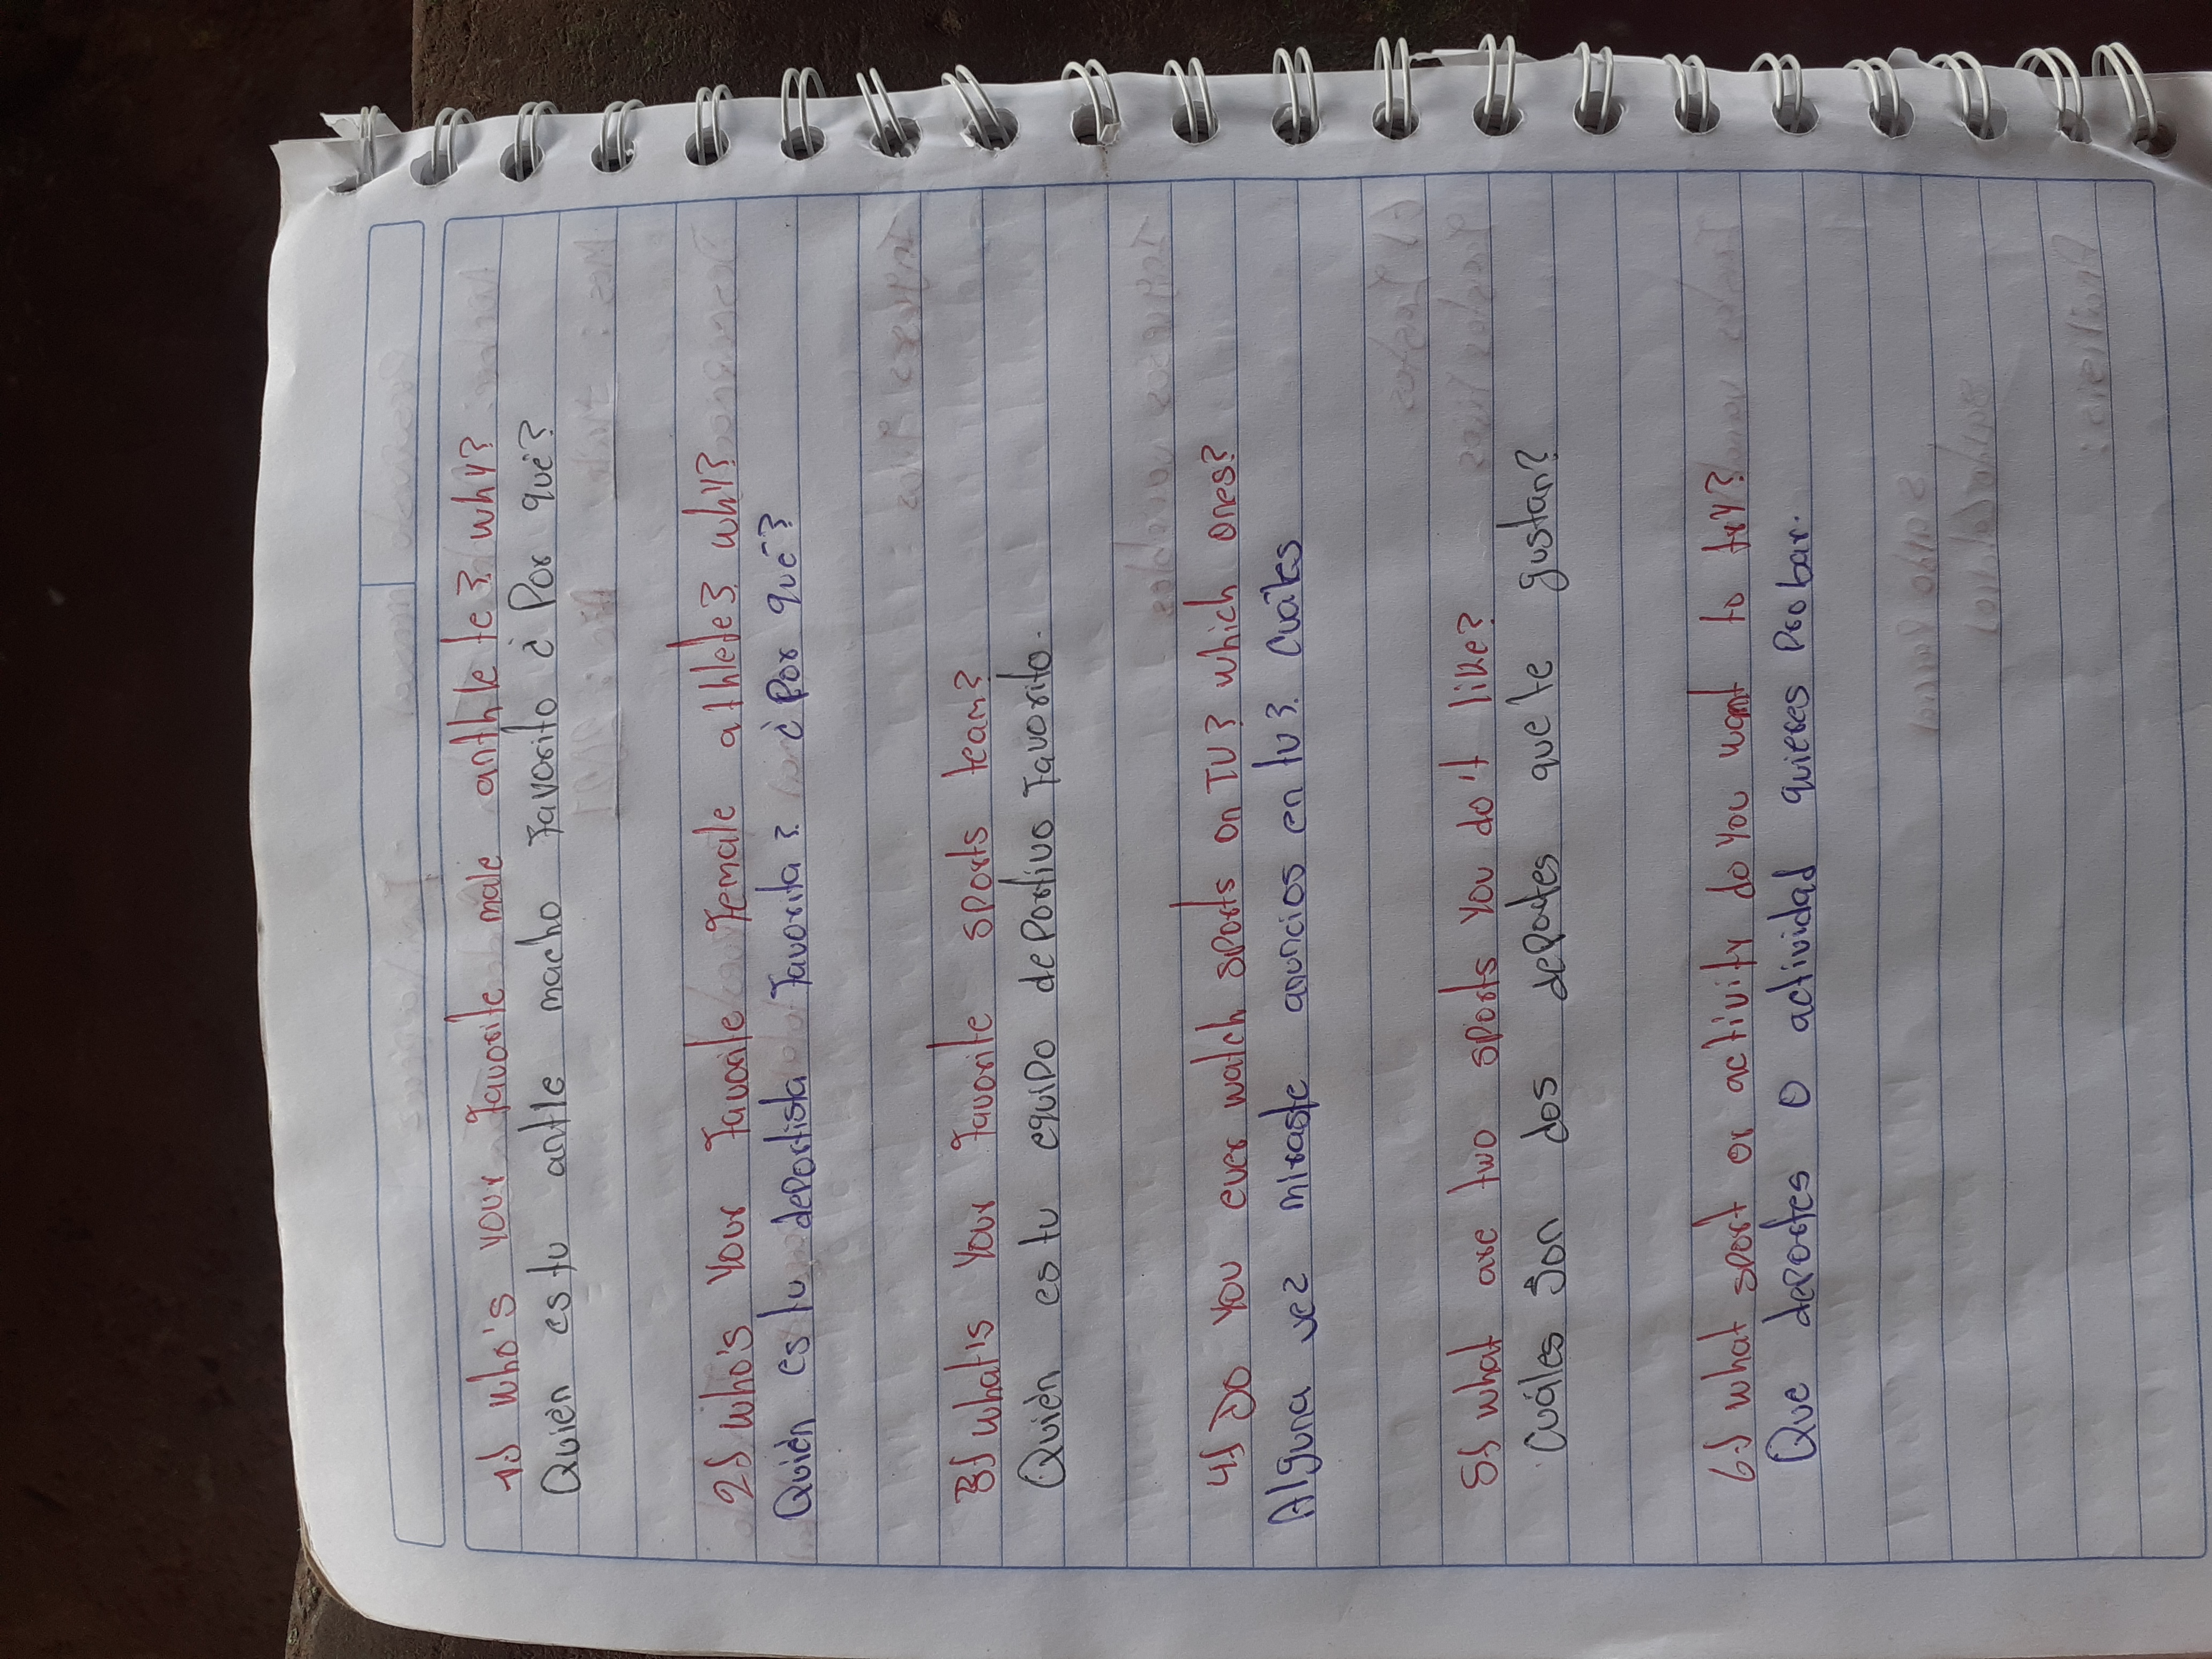 1.) Who's your favorite male anthle te? why?
Quièn es tu antle macho favorito ¿Por què?
2) Who's your favorite female athlete? why?
Quièn es tu deportista favorita? ¿Por què?
3) What is your favorite sports team?
Quièn es tu equipo deportivo favorito.
4) Do you ever watch sports on TV? which ones?
Alguna vez miraste anuncios en tv? cuáles
5) What are two sports you do't like?
Cuáles son dos deportes que te gustan?
6.) What sport or activity do you want to try?
Que deportes o actividad quieres probar.